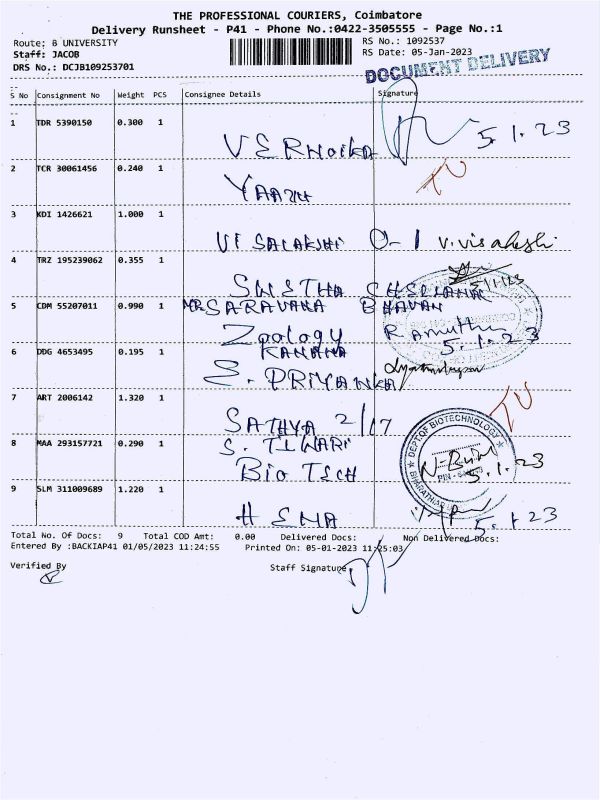 THE PROFESSIONAL COURIERS, Coimbatore
Delivery Runsheet - P41 - Phone No.:0422-3505555 - Page No.:1
Route: B UNIVERSITY
Staff: JACOB
DRS No.: DCJB109253701
RS No.: 1092537
RS Date: 05-Jan-2023
DOCUMENT DELIVERY
S No Consignment No Weight PCS Consignee Details Signature
1 TDR 5390150 0.300 1
VERNOIKA 5.1.23
2 TCR 30061456 0.240 1
TU
3 KDI 1426621 1.000 1
VISALAKSHI O-1 V.Visalakshi
4 TRZ 195239062 0.355 1
SWETHA
5/1/23
5 CDM 55207011 0.990 1 MR SARAVANA BHAVAN
Zoology Ramuthu
5.1.23
6 DDG 4653495 0.195 1 KANANA
S. PRIYANKA
7 ART 2006142 1.320 1
TU
SATHYA 2/17
8 MAA 293157721 0.290 1 S. TIWARI
BIO TECH
DEPT OF BIOTECHNOLOGY
5.1.23
9 SLM 311009689 1.220 1
HEMA 5.1.23
Total No. Of Docs: 9 Total COD Amt: 0.00 Delivered Docs: Non Delivered Docs:
Entered By :BACKIAP41 01/05/2023 11:24:55 Printed On: 05-01-2023 11:25:03
Verified By Staff Signature